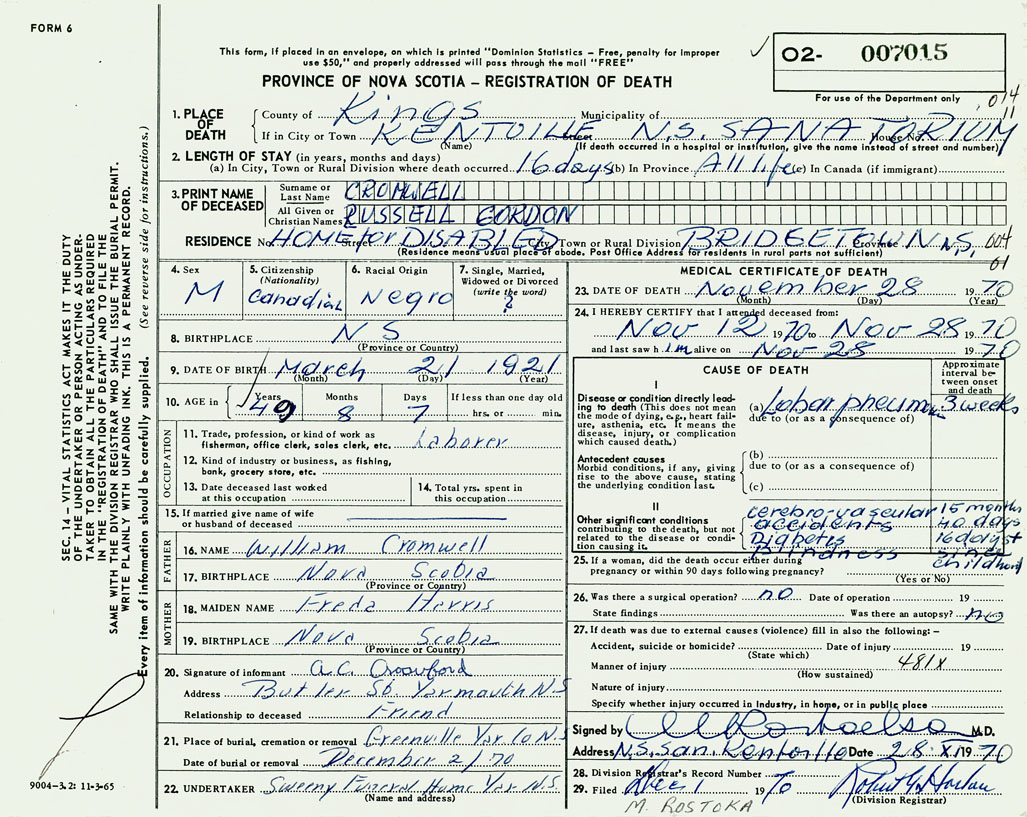 FORM 6
This form, if placed in an envelope, on which is printed "Dominion Statistics – Free, penalty for improper
use $50," and properly addressed will pass through the mail "FREE"
PROVINCE OF NOVA SCOTIA – REGISTRATION OF DEATH
O2- 007015
For use of the Department only
014
11
1. PLACE OF DEATH
County of Kings Municipality of
If in City or Town KENTVILLE Street N.S. SANATORIUM House No.
(Name) (If death occurred in a hospital or institution, give the name instead of street and number)
2. LENGTH OF STAY (in years, months and days)
(a) In City, Town or Rural Division where death occurred 16 days (b) In Province All life (c) In Canada (if immigrant)
3. PRINT NAME OF DECEASED
Surname or Last Name CROMWELL
All Given or Christian Names RUSSELL GORDON
RESIDENCE No. HOME for DISABLED Street City, Town or Rural Division BRIDGETOWN Province N.S. 004
(Residence means usual place of abode. Post Office Address for residents in rural parts not sufficient)
01
4. Sex M
5. Citizenship (Nationality) Canadian
6. Racial Origin Negro
7. Single, Married, Widowed or Divorced (write the word) ?
8. BIRTHPLACE N S
(Province or Country)
9. DATE OF BIRTH March 21 1921
(Month) (Day) (Year)
10. AGE in Years 49 Months 8 Days 7 If less than one day old hrs. or min.
OCCUPATION
11. Trade, profession, or kind of work as fisherman, office clerk, sales clerk, etc. Laborer
12. Kind of industry or business, as fishing, bank, grocery store, etc.
13. Date deceased last worked at this occupation
14. Total yrs. spent in this occupation
15. If married give name of wife or husband of deceased
FATHER
16. NAME William Cromwell
17. BIRTHPLACE Nova Scotia
(Province or Country)
MOTHER
18. MAIDEN NAME Freda Harris
19. BIRTHPLACE Nova Scotia
(Province or Country)
20. Signature of informant A.C. Crawford
Address Butler St. Yarmouth N.S
Relationship to deceased Friend
21. Place of burial, cremation or removal Greenville Yar Co N.S.
Date of burial or removal December 2/70
22. UNDERTAKER Sweeny Funeral Home Yar N.S.
(Name and address)
MEDICAL CERTIFICATE OF DEATH
23. DATE OF DEATH November 28 1970
(Month) (Day) (Year)
24. I HEREBY CERTIFY that I attended deceased from:
Nov 12 1970 to Nov 28 1970
and last saw h im alive on Nov 28 1970
CAUSE OF DEATH
Approximate interval between onset and death
I
Disease or condition directly leading to death (This does not mean the mode of dying, e.g., heart failure, asthenia, etc. It means the disease, injury, or complication which caused death.)
(a) Lobar pneum 3 weeks
due to (or as a consequence of)
Antecedent causes
Morbid conditions, if any, giving rise to the above cause, stating the underlying condition last.
(b)
due to (or as a consequence of)
(c)
II
Other significant conditions contributing to the death, but not related to the disease or condition causing it.
cerebro-vascular 15 months
accidents 40 days
Diabetis 16 days +
Blindness since childhood
25. If a woman, did the death occur either during pregnancy or within 90 days following pregnancy?
(Yes or No)
26. Was there a surgical operation? no Date of operation 19
State findings Was there an autopsy? no
27. If death was due to external causes (violence) fill in also the following: –
Accident, suicide or homicide? Date of injury 19
(State which)
Manner of injury 481X
(How sustained)
Nature of injury
Specify whether injury occurred in industry, in home, or in public place
Signed by M.D.
Address N.S. San Kentville Date 28 XI 1970
28. Division Registrar's Record Number
29. Filed Dec 1 1970
(Division Registrar)
M. ROSTOKA
SEC. 14 – VITAL STATISTICS ACT MAKES IT THE DUTY
OF THE UNDERTAKER OR PERSON ACTING AS UNDER-
TAKER TO OBTAIN ALL THE PARTICULARS REQUIRED
IN THE "REGISTRATION OF DEATH" AND TO FILE THE
SAME WITH THE DIVISION REGISTRAR WHO SHALL ISSUE THE BURIAL PERMIT.
WRITE PLAINLY WITH UNFADING INK. THIS IS A PERMANENT RECORD.
Every item of information should be carefully supplied. (See reverse side for instructions.)
9004-3.2: 11-3-65